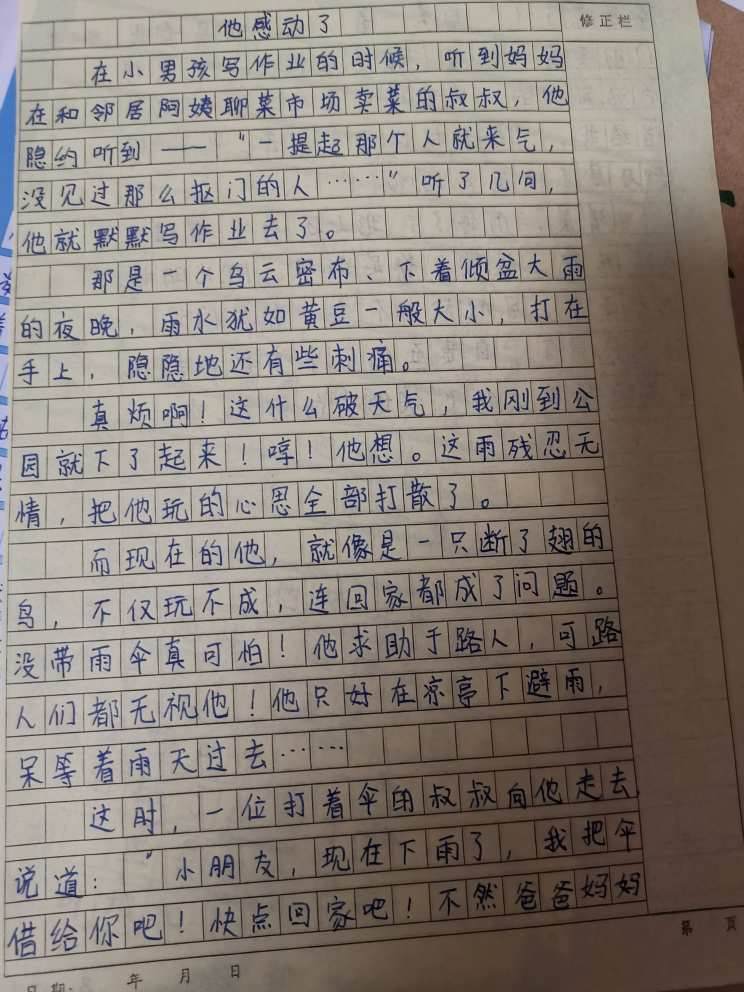 他感动了
修正栏
在小男孩写作业的时候，听到妈妈
在和邻居阿姨聊菜市场卖菜的叔叔，他
隐约听到——“一提起那个人就来气，
没见过那么抠门的人……”听了几间，
他就默默写作业去了。
那是一个乌云密布、下着倾盆大雨
的夜晚，雨水犹如黄豆一般大小，打在
手上，隐隐地还有些刺痛。
真烦啊！这什么破天气，我刚到公
园就下了起来！哼！他想。这雨残忍无
情，把他玩的心思全部打散了。
而现在的他，就像是一只断了翅的
鸟，不仅玩不成，连回家都成了问题。
没带雨伞真可怕！他求助于路人，可路
人们都无视他！他只好在凉亭下避雨，
呆等着雨天过去……
这时，一位打着伞的叔叔向他走去
说道：“小朋友，现在下雨了，我把伞
借给你吧！快点回家吧！不然爸爸妈妈
第 页
日期： 年 月 日